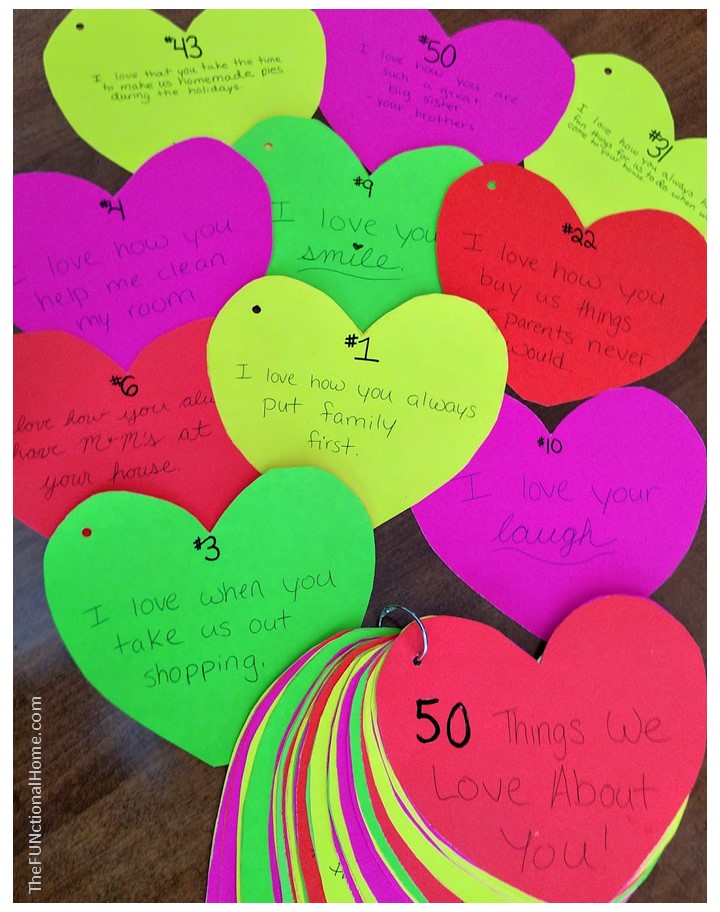 #43
I love that you take the time
to make us homemade pies
during the holidays
#50
I love how you are
such a great
big sister
- your brothers
#31
I love how you always
fun things for us to do when
come to your house
#9
I love you
smile.
#4
I love how you
help me clean
my room
#22
I love how you
buy us things
parents never
would.
#1
I love how you always
put family
first.
#6
love how you
have M+M's at
your house.
#10
I love your
laugh
#3
I love when you
take us out
shopping.
50 Things We
Love About
You!
TheFUNctionalHome.com